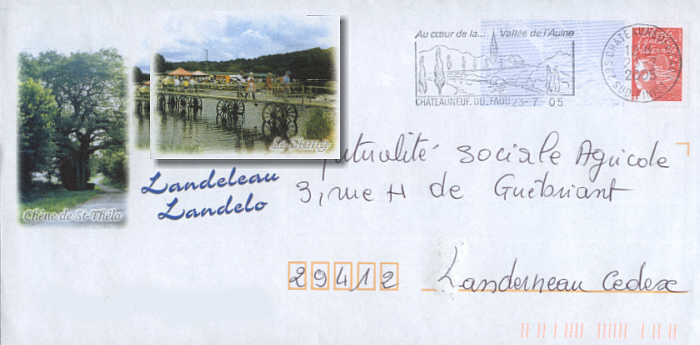 Au cœur de la... Vallée de l'Aulne
CHATEAUNEUF.DU.FAOU 23-7 05
Chêne de St-Thélo
Landeleau
Landelo
Mutualité Sociale Agricole
3, rue H de Guébriant
29412 Landerneau Cedex